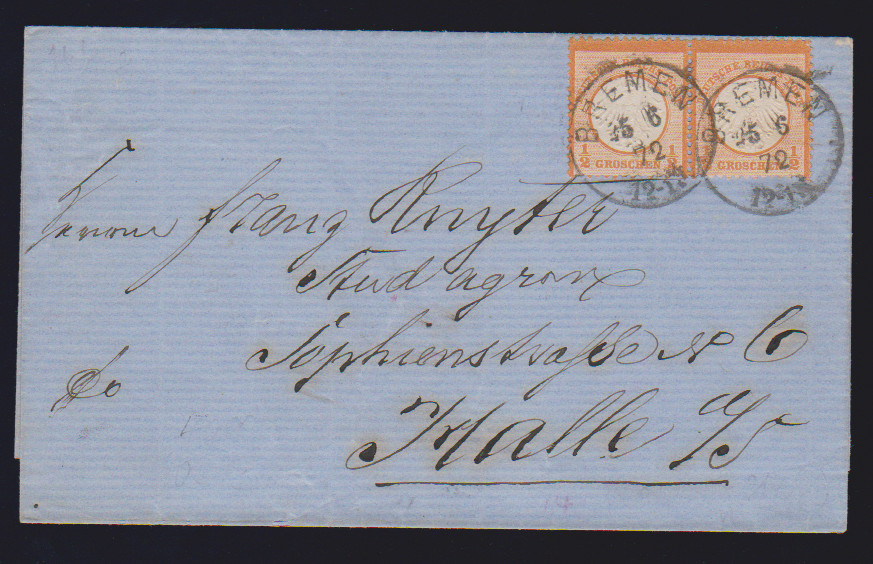 DEUTSCHE REICHS
DEUTSCHE REICHS
½ GROSCHEN ½
½ GROSCHEN ½
BREMEN
25 6
72
12-1
BREMEN
25 6
72
12-1
Herrn Franz Ruyter
Stud agron
Sophienstrasse № 6
Halle a/S